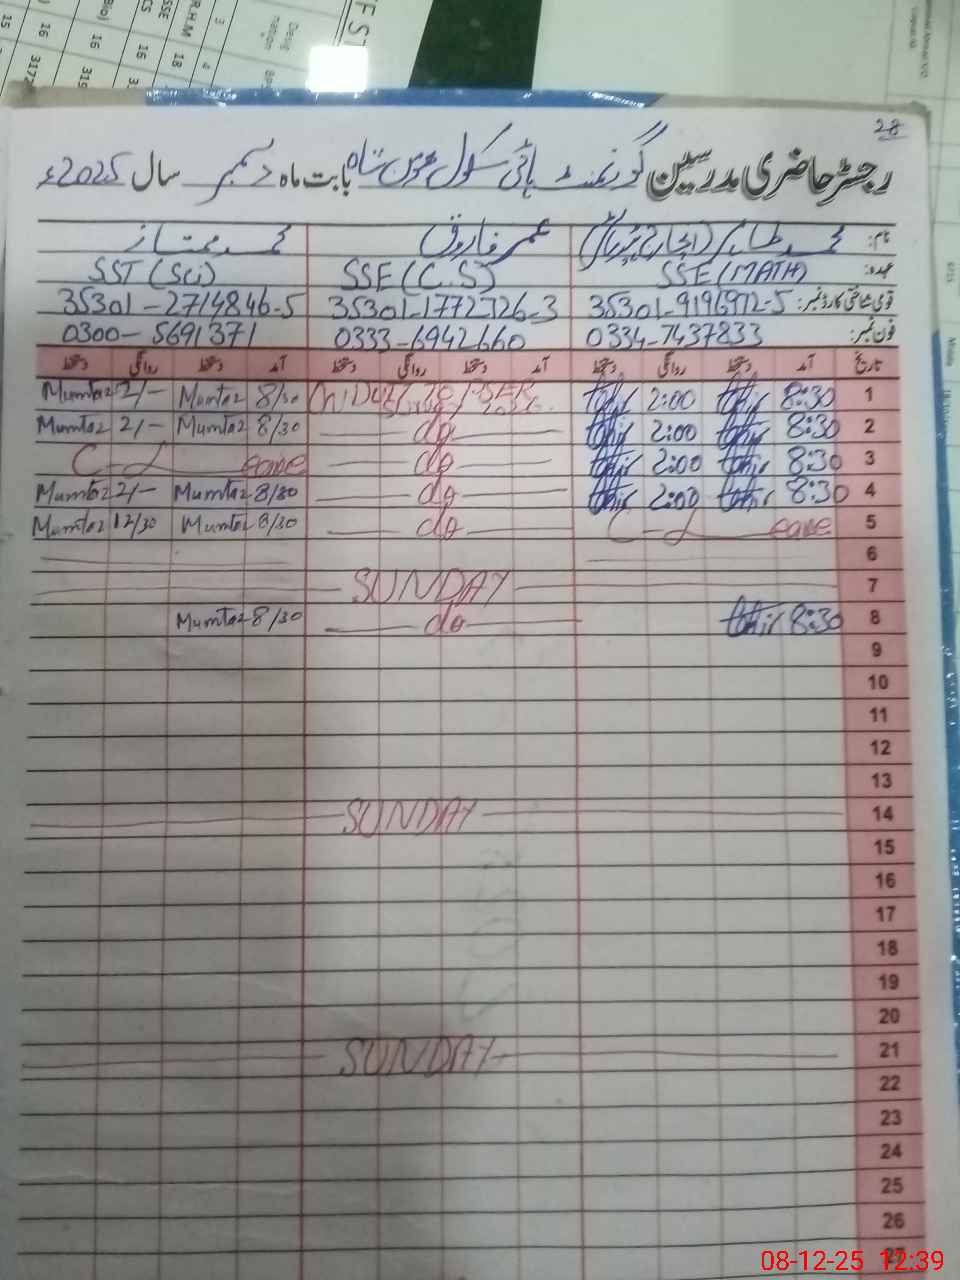 28
رجسٹر حاضری مدرسین گورنمنٹ ہائی سکول بابت ماہ دسمبر سال 2025ء
نام: محمد طاہر (انچارج محمد عمر فاروق محمد ممتاز
عہدہ: SSE (MATH) SSE (C.S) SST (Sci)
قومی شناختی کارڈ نمبر: 35301-9196972-5 35301-1772726-3 35301-2714846-5
فون نمبر: 0334-7437833 0333-6942660 0300-5691371
تاریخ آمد دستخط روانگی دستخط آمد دستخط روانگی دستخط آمد دستخط روانگی دستخط
1 8:30 tahir 2:00 tahir ON DUTY TO PSER Survey 8/30 Mumtaz 2/- Mumtaz
2 8:30 tahir 2:00 tahir do 8/30 Mumtaz 2/- Mumtaz
3 8:30 tahir 2:00 tahir do C-Leave
4 8:30 tahir 2:00 tahir do 8/30 Mumtaz 2/- Mumtaz
5 C-Leave do 8/30 Mumtaz 12/30 Mumtaz
6
7 SUNDAY
8 8:30 tahir do 8/30 Mumtaz
9
10
11
12
13
14 SUNDAY
15
16
17
18
19
20
21 SUNDAY
22
23
24
25
26
27
08-12-25 12:39